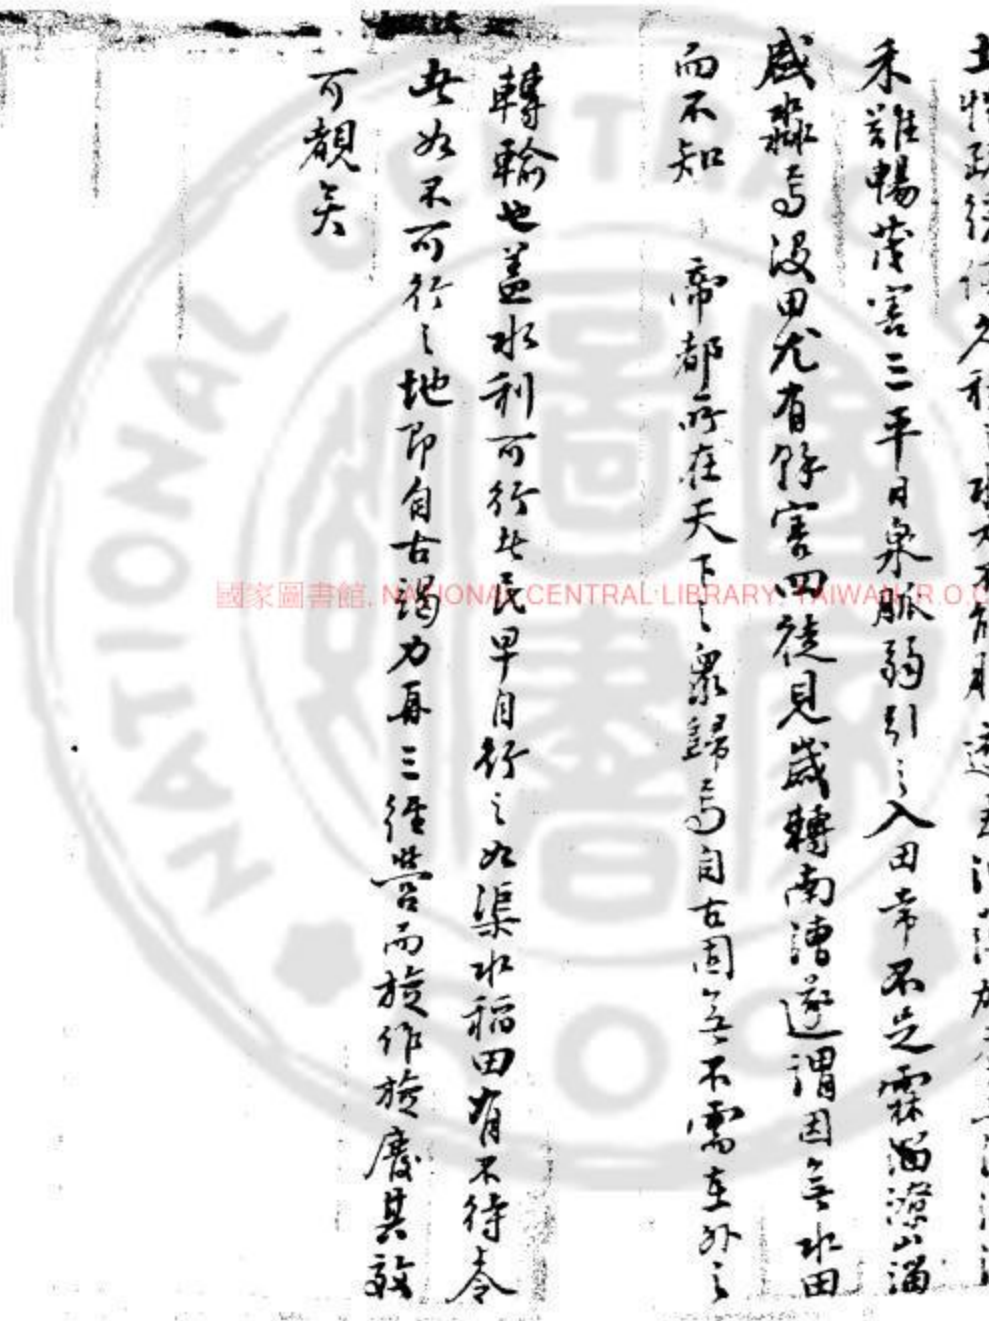 禾難暢茂害三平日泉脈弱引之入田常不足霖潦山淄
盛淼焉沒田尤有餘害四徒見歲轉南漕遂謂因無水田
而不知 帝都所在天下之眾歸焉自古固無不需在外之
轉輸也蓋水利可行者民早自行之如渠水稻田有不待令
者如不可行之地即自古竭力再三經營而旋作旋廢其效
可覩矣
國家圖書館, NATIONAL CENTRAL LIBRARY, TAIWAN, R.O.C
NATIONAL CENTRAL
國家圖書